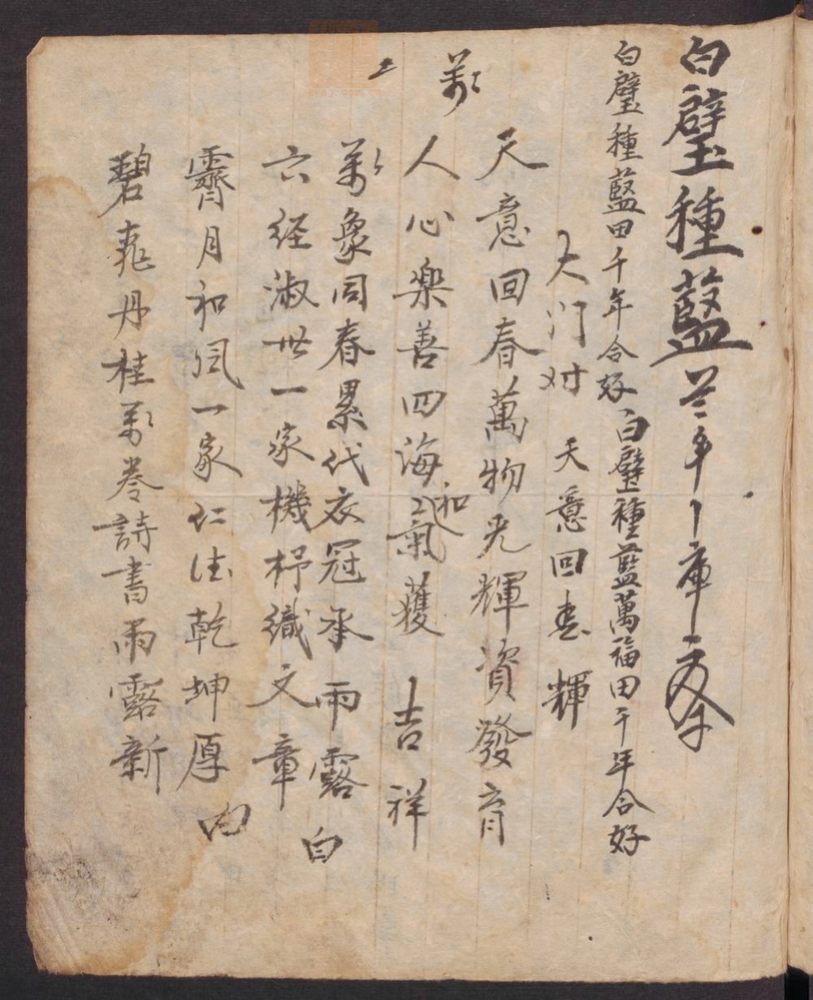 白璧種藍
白璧種藍田千年合好 白璧種藍萬福田千年合好
大门对 天意回春輝
天意回春萬物光輝資發育
萬
人心樂善四海和氣獲吉祥
萬象同春累代衣冠承雨露 白
六经淑世一家機杼織文章
霽月和風一家仁法乾坤厚 内
碧桃丹桂萬卷詩書雨露新